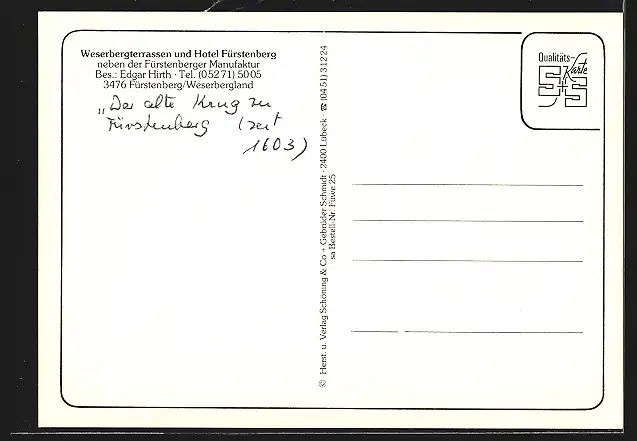 Weserbergterrassen und Hotel Fürstenberg
neben der Fürstenberger Manufaktur
Bes.: Edgar Hirth · Tel. (05271) 5005
3476 Fürstenberg/Weserbergland
„Der alte Krug zu
Fürstenberg (seit
1603)
© Herst. u. Verlag Schöning & Co + Gebrüder Schmidt · 2400 Lübeck · ☎ (0451) 31224
sa Bestell-Nr. Füwe 25
Qualitäts-
Karte
S+S